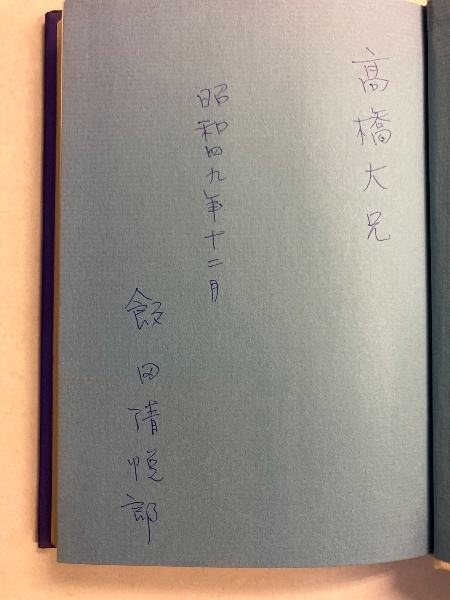 高橋大兄
昭和四九年十二月
飯田清悦郎